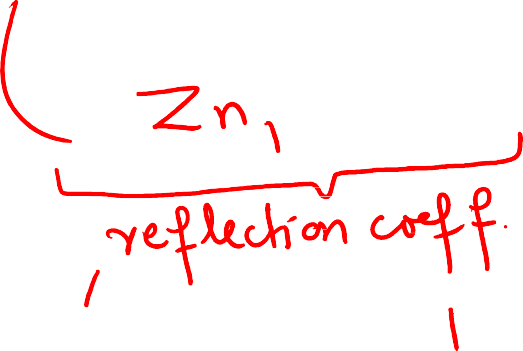 Zn,
reflection coeff.